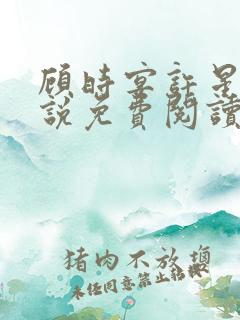 顾时宴許星
說免費閱讀
猪肉不放塩
未任同意禁止转载